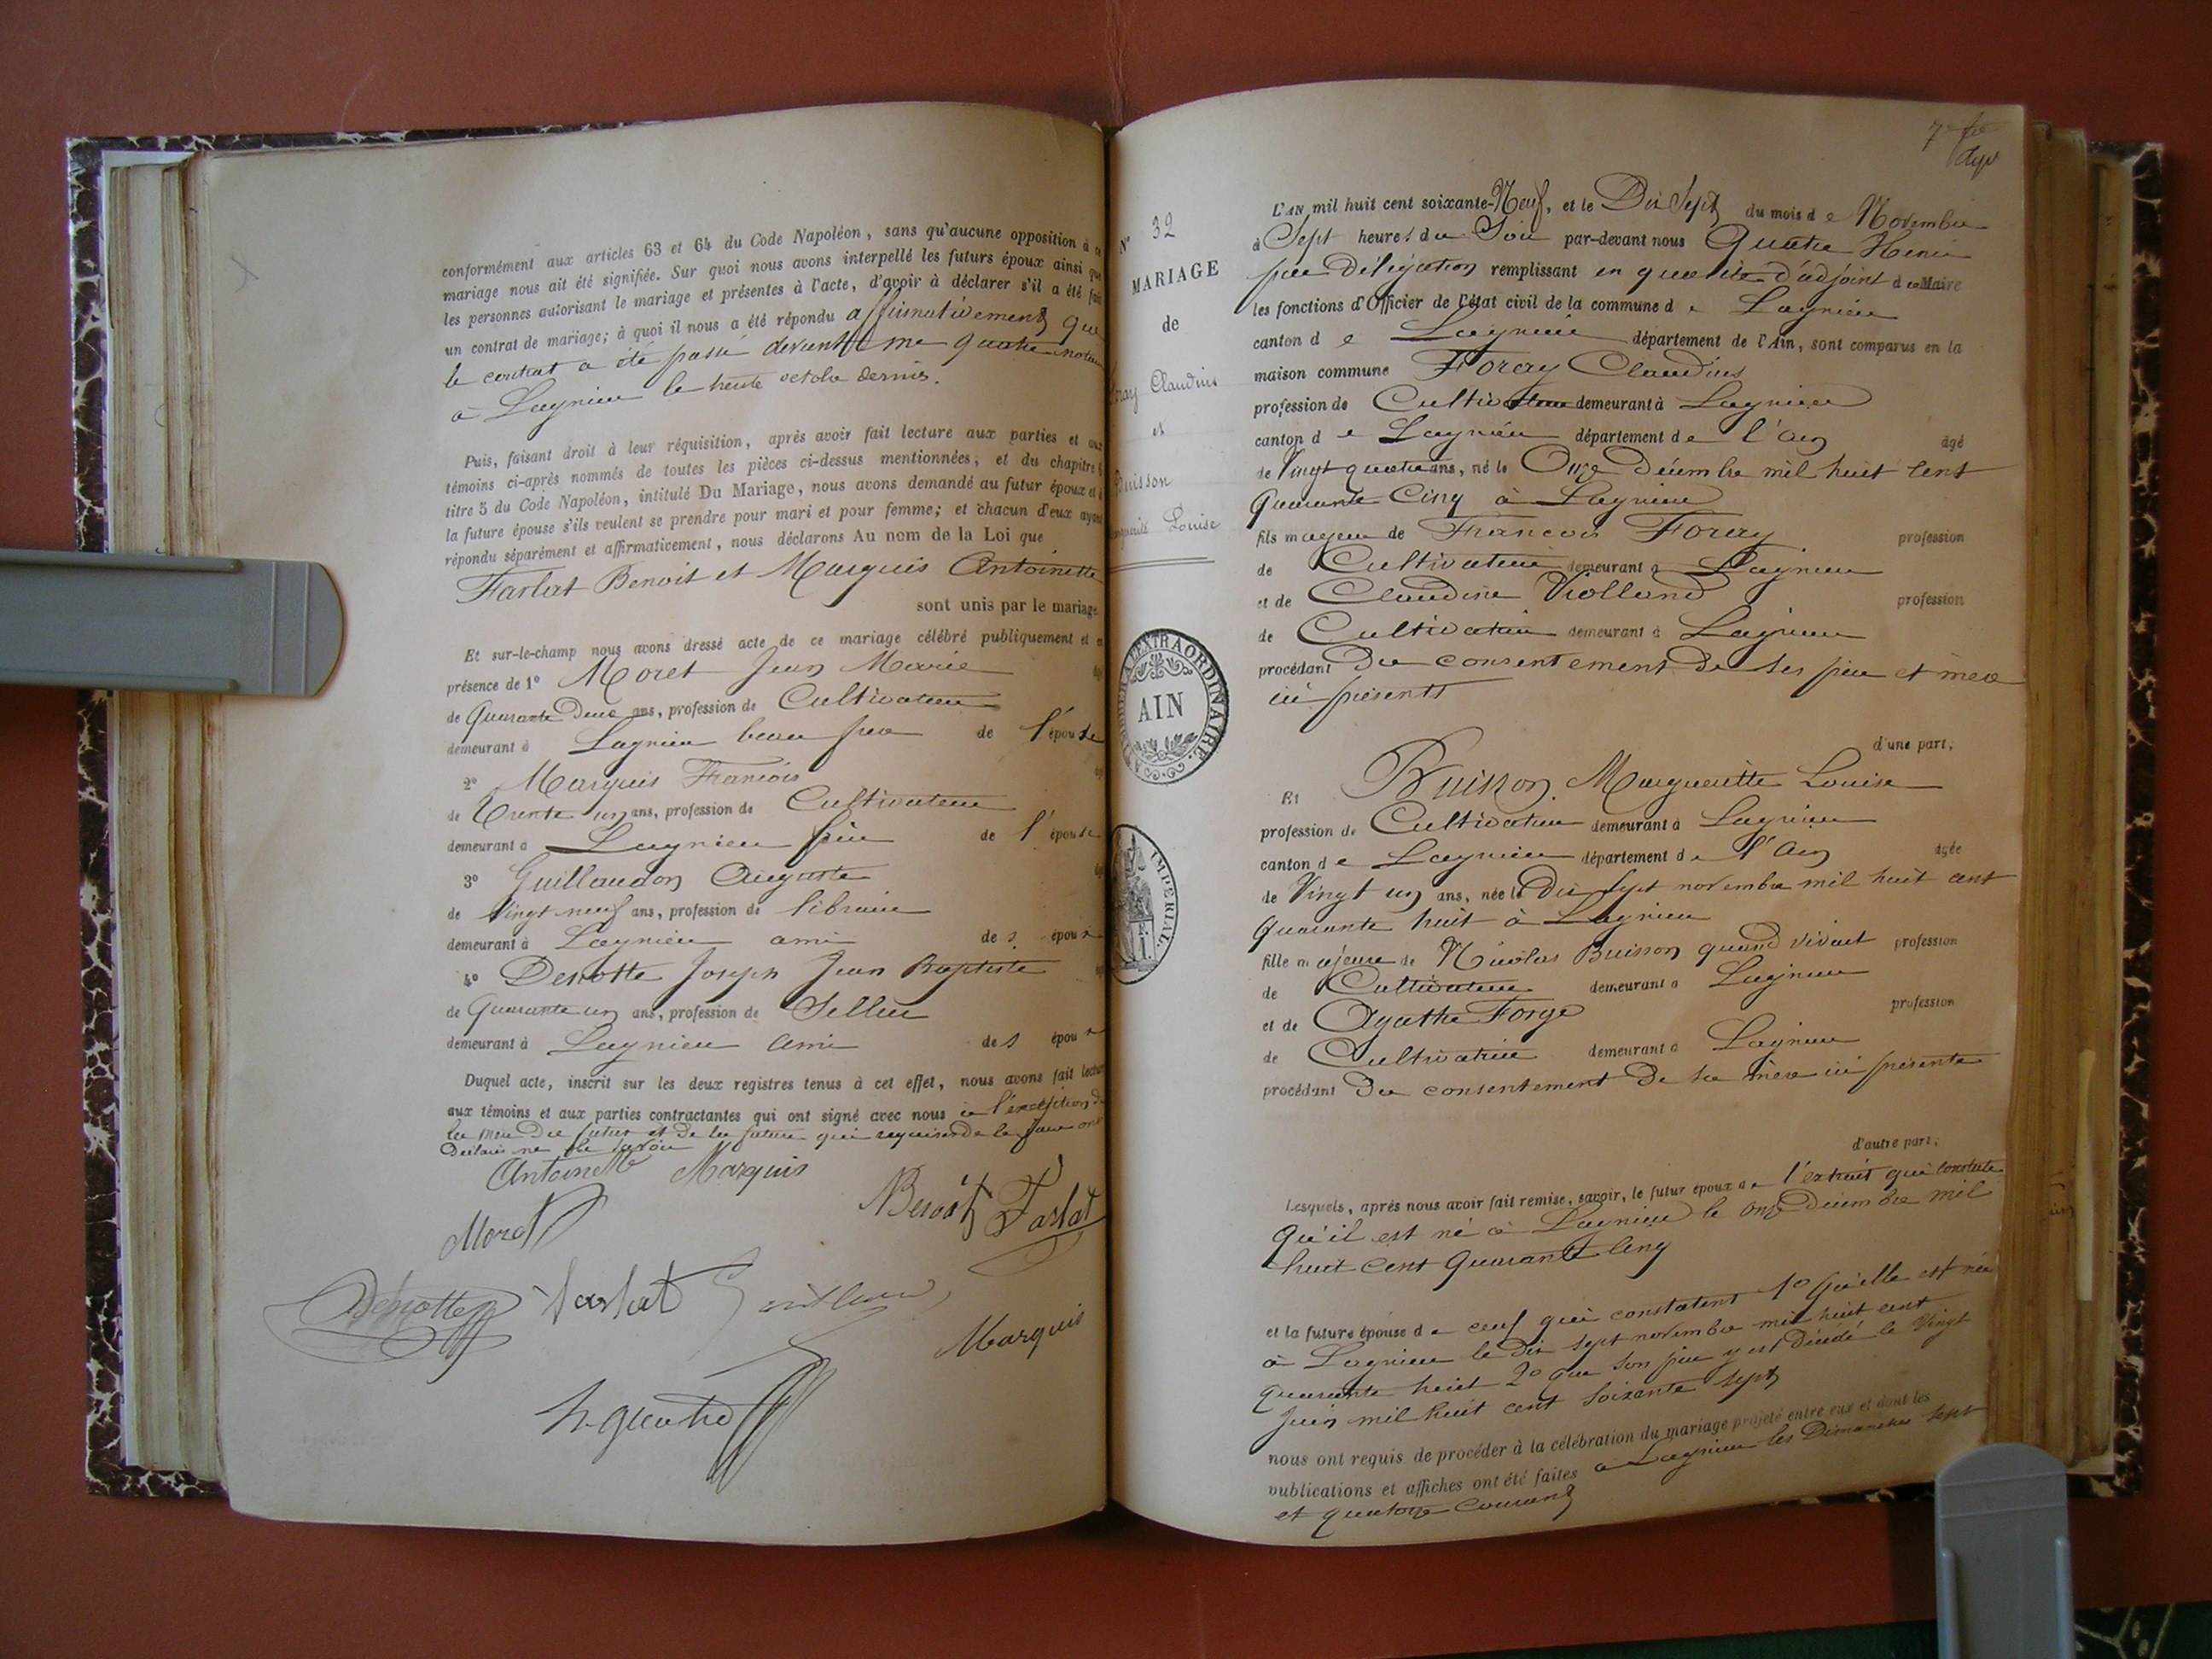 conformément aux articles 63 et 64 du Code Napoléon, sans qu'aucune opposition à ce
mariage nous ait été signifiée. Sur quoi nous avons interpellé les futurs époux ainsi que
les personnes autorisant le mariage et présentes à l'acte, d'avoir à déclarer s'il a été fait
un contrat de mariage; à quoi il nous a été répondu affirmativement que
le contrat a été passé devant me Quatre
à Lagnieu le trente octobre dernier.
Puis, faisant droit à leur réquisition, après avoir fait lecture aux parties et aux
témoins ci-après nommés de toutes les pièces ci-dessus mentionnées, et du chapitre
titre 5 du Code Napoléon, intitulé Du Mariage, nous avons demandé au futur époux et à
la future épouse s'ils veulent se prendre pour mari et pour femme; et chacun d'eux ayant
répondu séparément et affirmativement, nous déclarons Au nom de la Loi que
Farlat Benoit et Marquis Antoinette
sont unis par le mariage.
Et sur-le-champ nous avons dressé acte de ce mariage célébré publiquement et en
présence de 1° Moret Jean Marie
de Quarante Deux ans, profession de Cultivateur
demeurant à Lagnieu beau frere de l'épouse
2° Marquis François
de Trente un ans, profession de Cultivateur
demeurant à Lagnieu frère de l'épouse
3° Guillaudon Auguste
de Vingt neuf ans, profession de libraire
demeurant à Lagnieu ami des époux
4° Desnotte Joseph Jean Baptiste
de Quarante un ans, profession de Sellier
demeurant à Lagnieu ami des époux
Duquel acte, inscrit sur les deux registres tenus à cet effet, nous avons fait lecture
aux témoins et aux parties contractantes qui ont signé avec nous à l'exception de
la mère du futur et de la future qui requises de le faire ont
Déclaré ne le savoir
Antoinette Marquis
Benoit Farlat
Moret
Farlat
Marquis
h quatre
7e fe
N° 32
MARIAGE
de
Foray Claudius
et
Buisson
Marguerite Louise
EXTRAORDINAIRE
AIN
IMPERIAL
L'AN mil huit cent soixante-Neuf, et le Dix Sept du mois de Novembre
à Sept heures du Soir par-devant nous Quatre Henri
par délégation remplissant en qualité d'adjoint de Maire
les fonctions d'Officier de l'état civil de la commune de Lagnieu
canton de Lagnieu département de l'Ain, sont comparus en la
maison commune Foray Claudius
profession de Cultivateur demeurant à Lagnieu
canton de Lagnieu département de l'Ain âgé
de Vingt quatre ans, né le Onze Décembre mil huit cent
Quarante Cinq à Lagnieu
fils majeur de François Foray profession
de Cultivateur demeurant à Lagnieu
et de Claudine Violland profession
de Cultivatrice demeurant à Lagnieu
procédant Du consentement De ses père et mère
ici présents
d'une part,
Et Buisson Marguerite Louise
profession de Cultivatrice demeurant à Lagnieu
canton de Lagnieu département de l'Ain âgée
de Vingt un ans, née le Dix Sept novembre mil huit cent
Quarante huit à Lagnieu
fille majeure de Nicolas Buisson quand vivait profession
de Cultivateur demeurant à Lagnieu
et de Agathe Forge profession
de Cultivatrice demeurant à Lagnieu
procédant Du consentement De sa mère ici présente
d'autre part,
Lesquels, après nous avoir fait remise, savoir, le futur époux de l'extrait qui constate
Qu'il est né à Lagnieu le onze Décembre mil
huit cent Quarante cinq
et la future épouse de ceux qui constatent 1° Qu'elle est née
à Lagnieu le dix sept novembre mil huit cent
Quarante huit 2° que son père y est Décédé le Vingt
Juin mil huit cent soixante sept
nous ont requis de procéder à la célébration du mariage projeté entre eux et dont les
publications et affiches ont été faites à Lagnieu les Dimanches sept
et quatorze courant